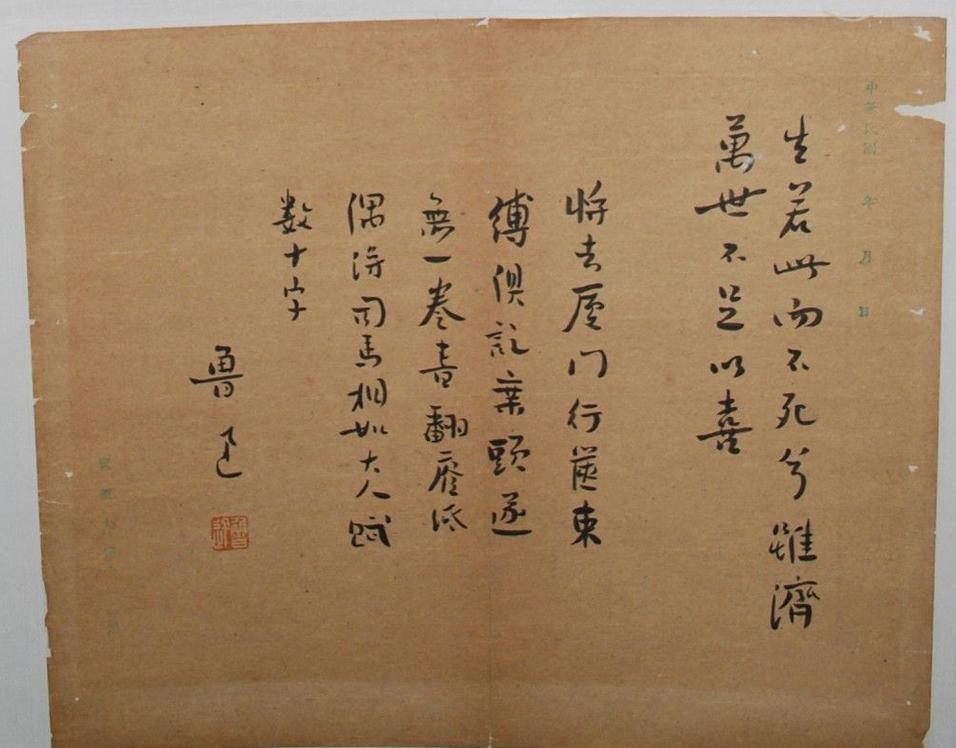 中華民國 年 月 日
生若此而不死兮雖濟
萬世不足以喜
将去厦门行篋束
縛俱訖案頭遂
無一卷書翻廢纸
偶得司馬相如大人賦
数十字
魯迅